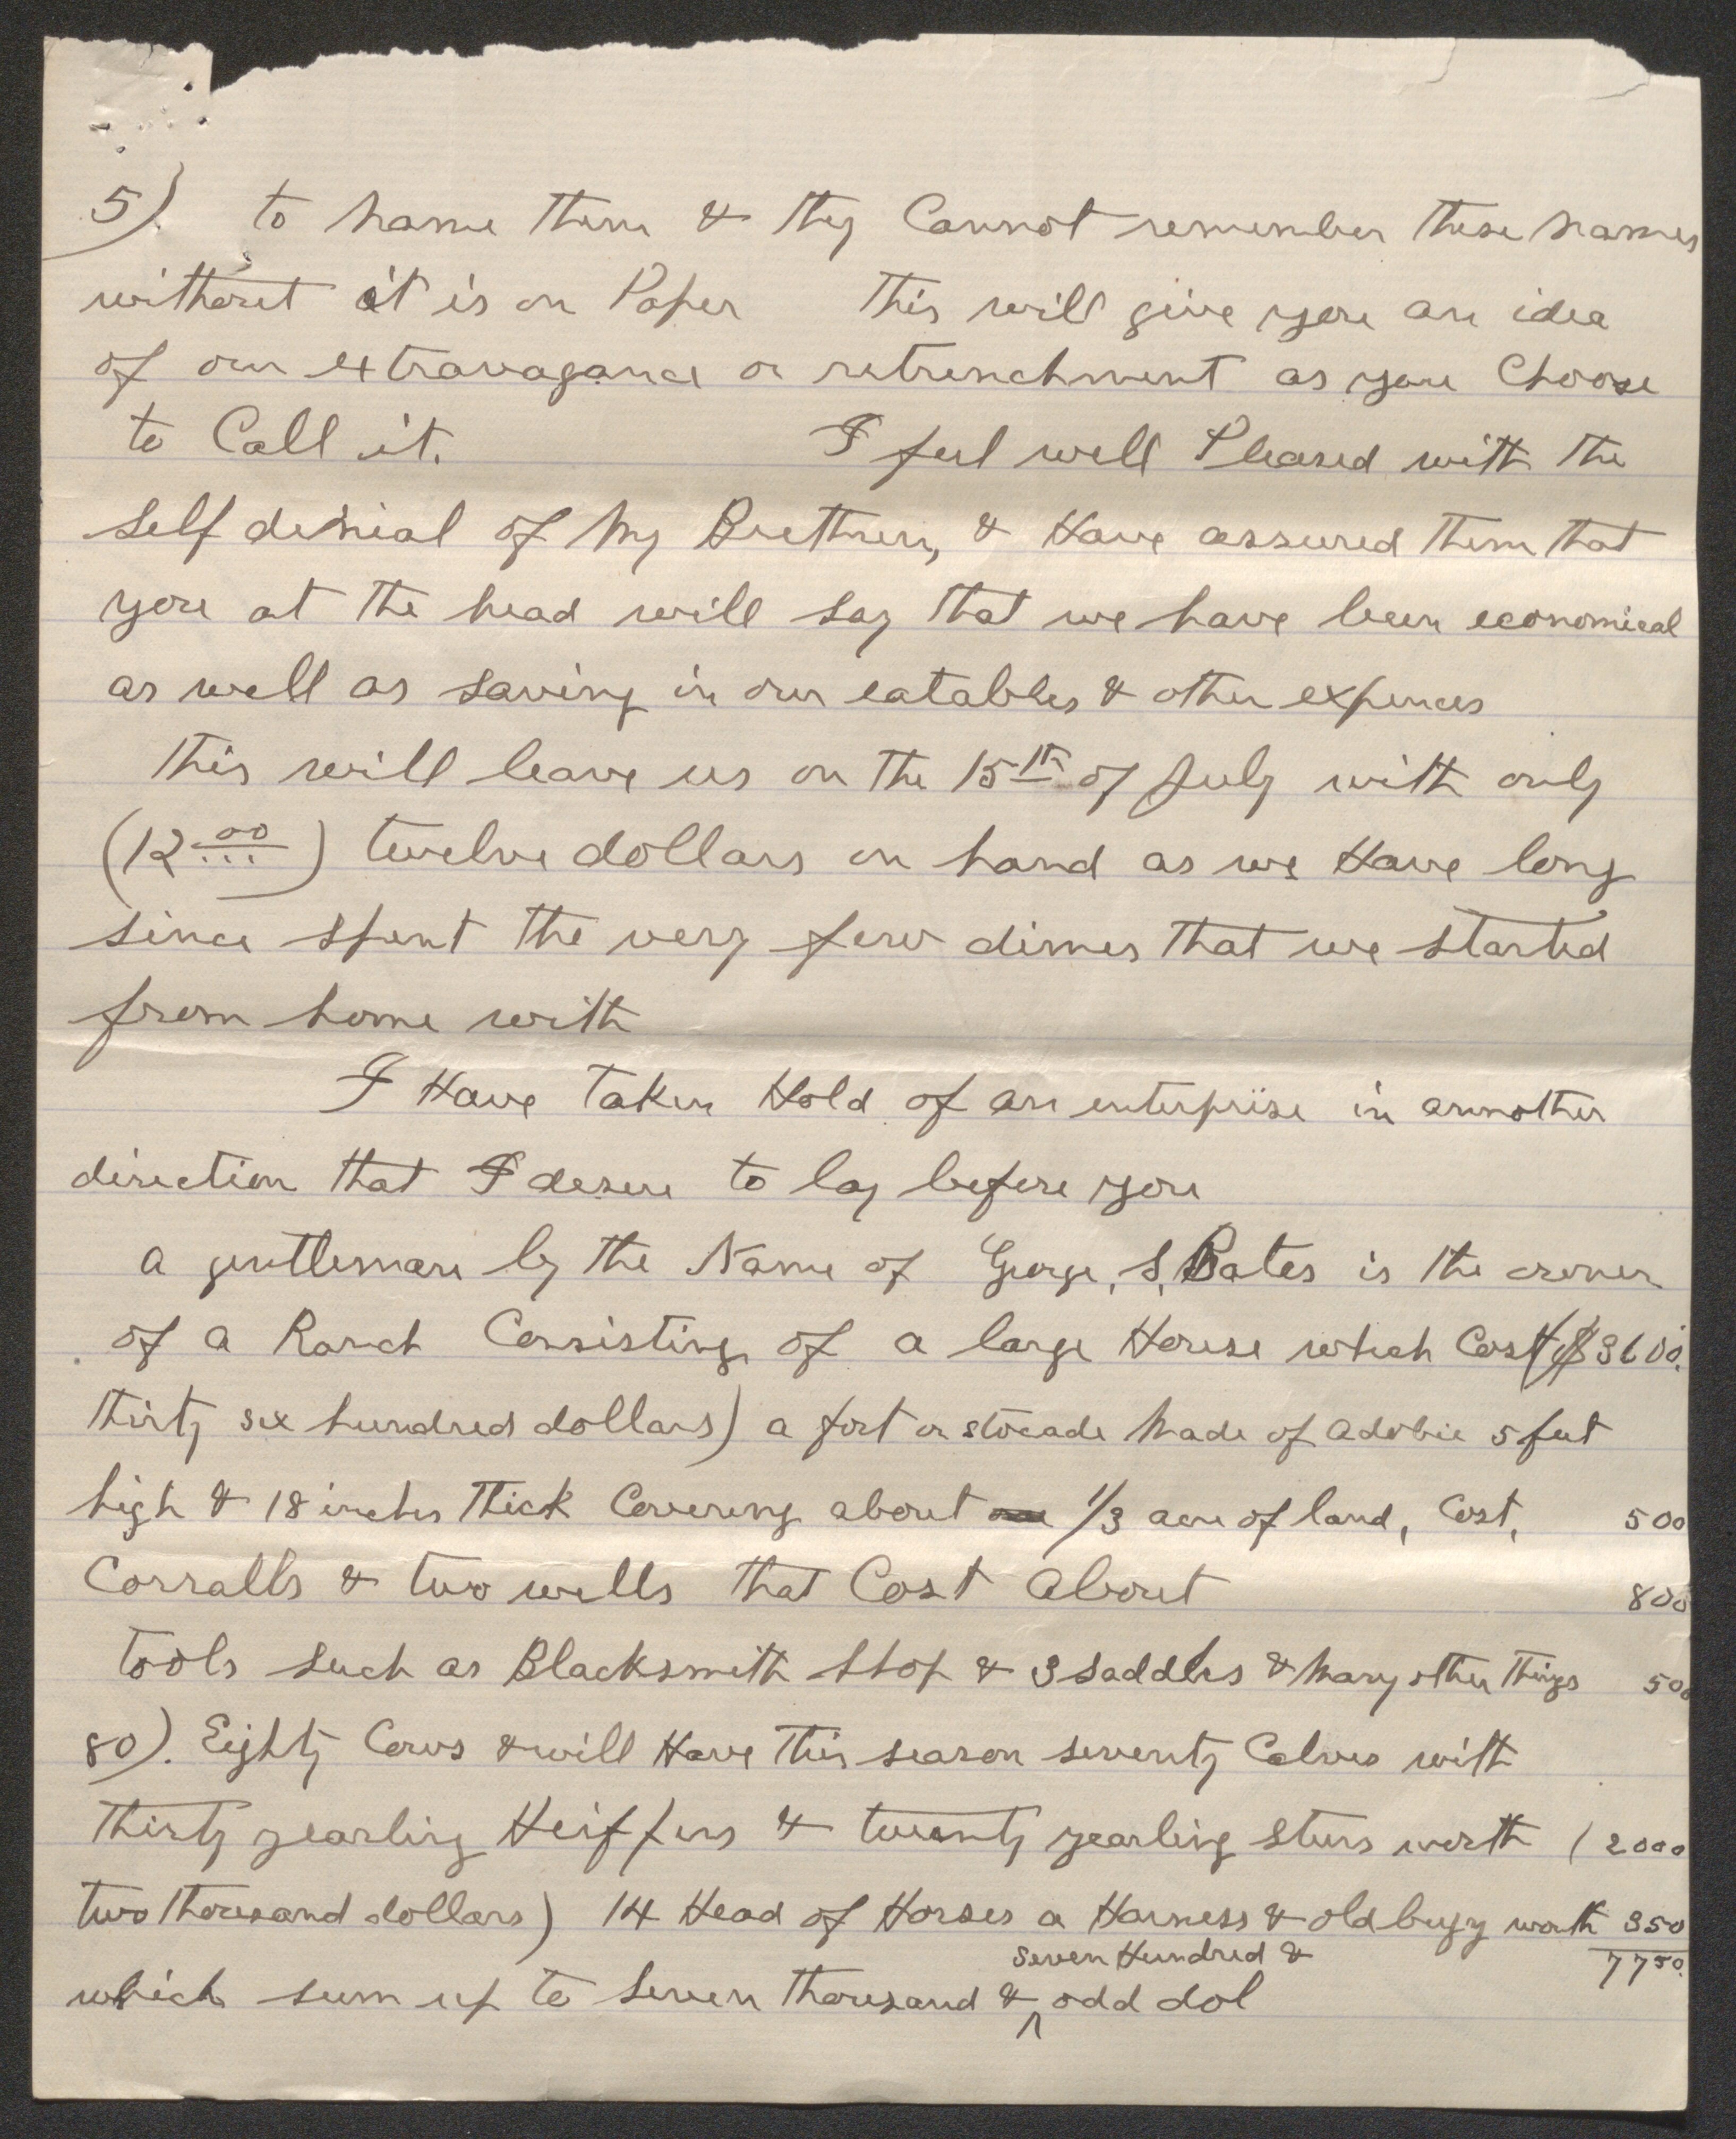 5). to name them & they Cannot remember these names
without it is on Paper This will give you an idea
of our extravagance or retrenchment as you Choose
to Call it. I feel well Pleased with the
self denial of my Brethren, & Have assured them that
you at the head will say that we have been economical
as well as saving in our eatables & other expences
This will leave us on the 15th of July with only
(12 00/...) twelve dollars on hand as we Have long
since spent the very few dimes that we started
from home with
I Have Taken Hold of an enterprise in annother
direction that I desire to lay before you
a gentleman by the Name of George. S. Bates is the owner
of a Ranch Consisting of a large House which Cost ($3600.
thirty six hundred dollars) a fort or stocade made of adobie 5 feet
high & 18 inches Thick Covering about 1/3 acre of land, Cost, 500
Corralls & two wells that Cost about 800
Tools such as Blacksmith Shop & 3 saddles & many other Things 500
80). Eighty Cows & will Have This season seventy Calves with
Thirty yearling Heiffers & twenty yearling steers worth (2000
two thousand dollars) 14 Head of Horses a Harness & old bugy worth 350
seven Hundred & 7750.
which sum up to seven thousand & ^ odd dol